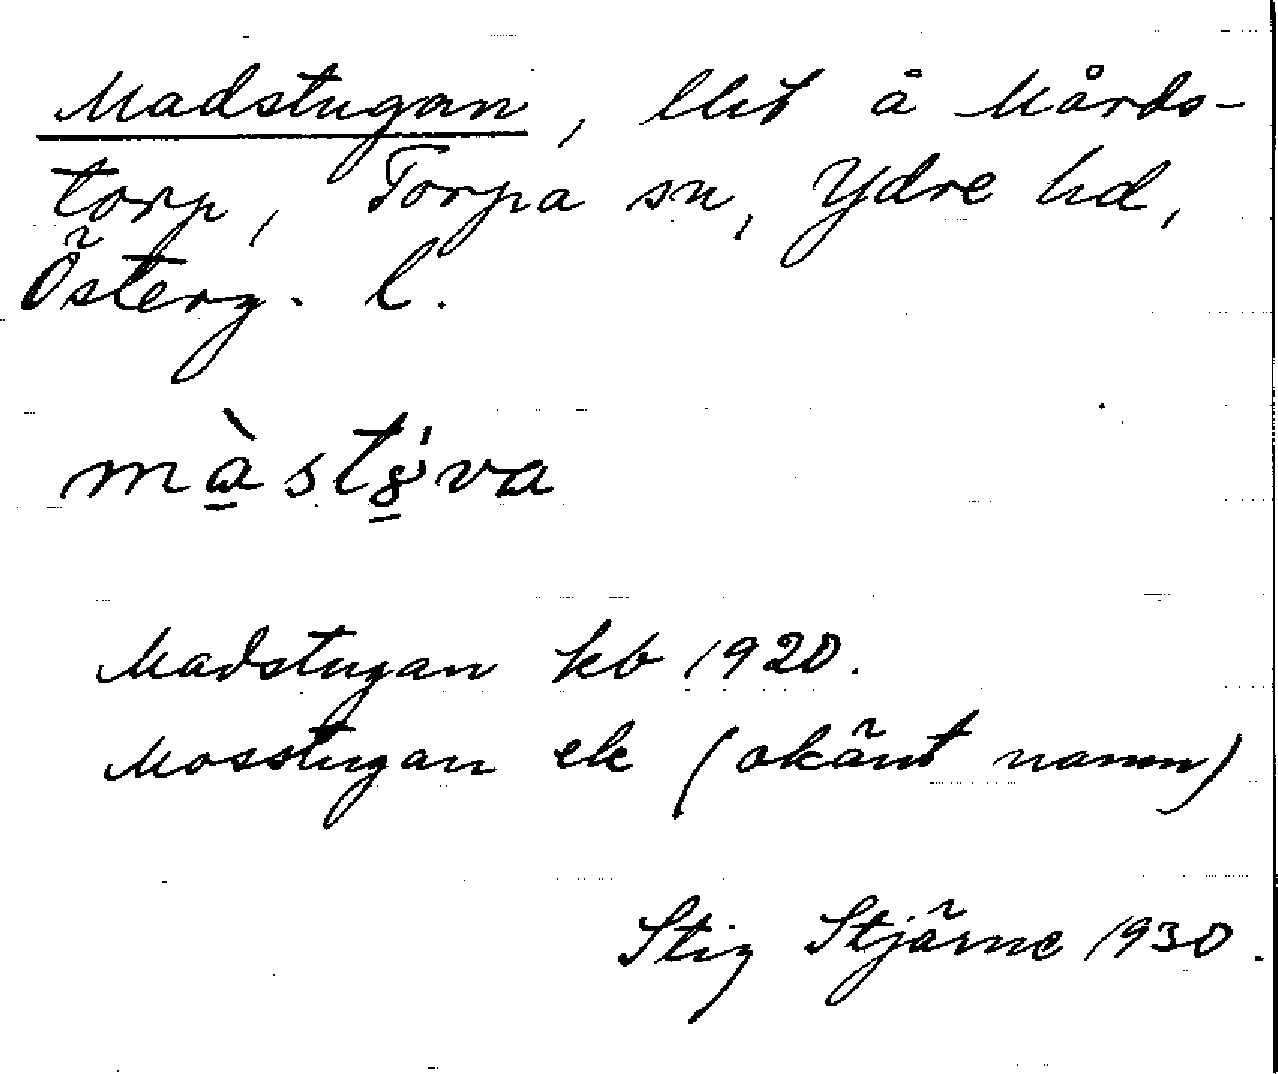 Madstugan, lht å Mårds-
torp, Torpa sn, Ydre hd,
Österg. l.
Madstugan kb 1920.
Mosstugan ek (okänt namn)
Stig Stjärne 1930.